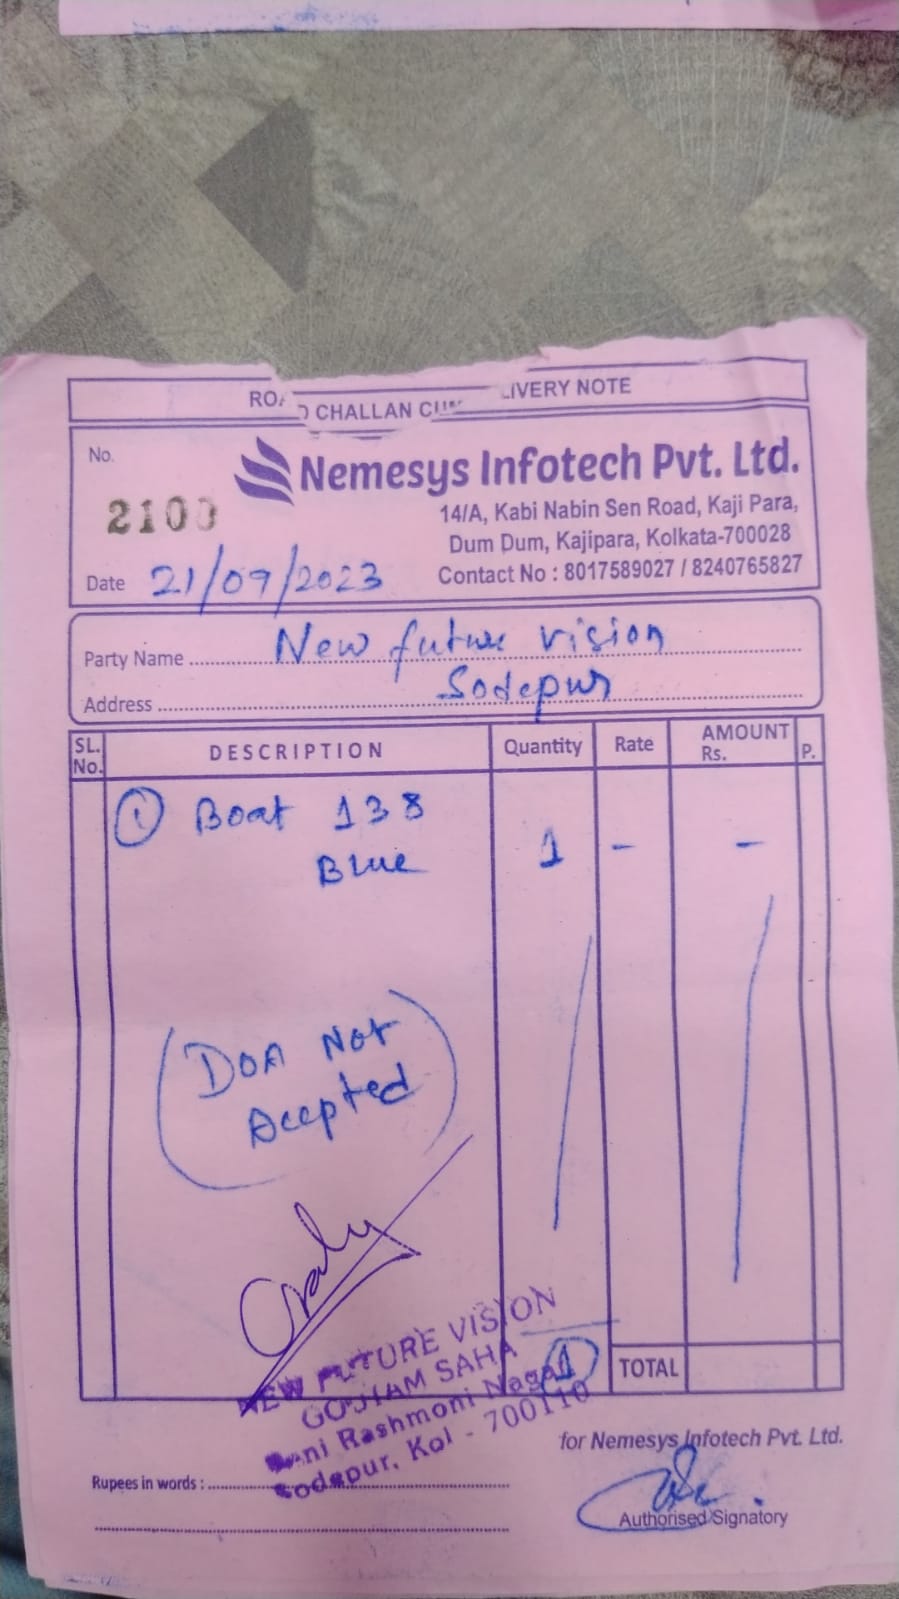 ROAD CHALLAN CUM DELIVERY NOTE
No.
2100
Nemesys Infotech Pvt. Ltd.
14/A, Kabi Nabin Sen Road, Kaji Para,
Dum Dum, Kajipara, Kolkata-700028
Contact No : 8017589027 / 8240765827
Date 21/09/2023
Party Name New future vision
Address Sodepur
SL. No. DESCRIPTION Quantity Rate AMOUNT Rs. P.
① Boat 138 1 - -
Blue
(DOA Not
Accepted)
NEW FUTURE VISION
GOUTAM SAHA
Rani Rashmoni Nagar
Sodepur, Kol - 700110
1 TOTAL
for Nemesys Infotech Pvt. Ltd.
Rupees in words :
Authorised Signatory